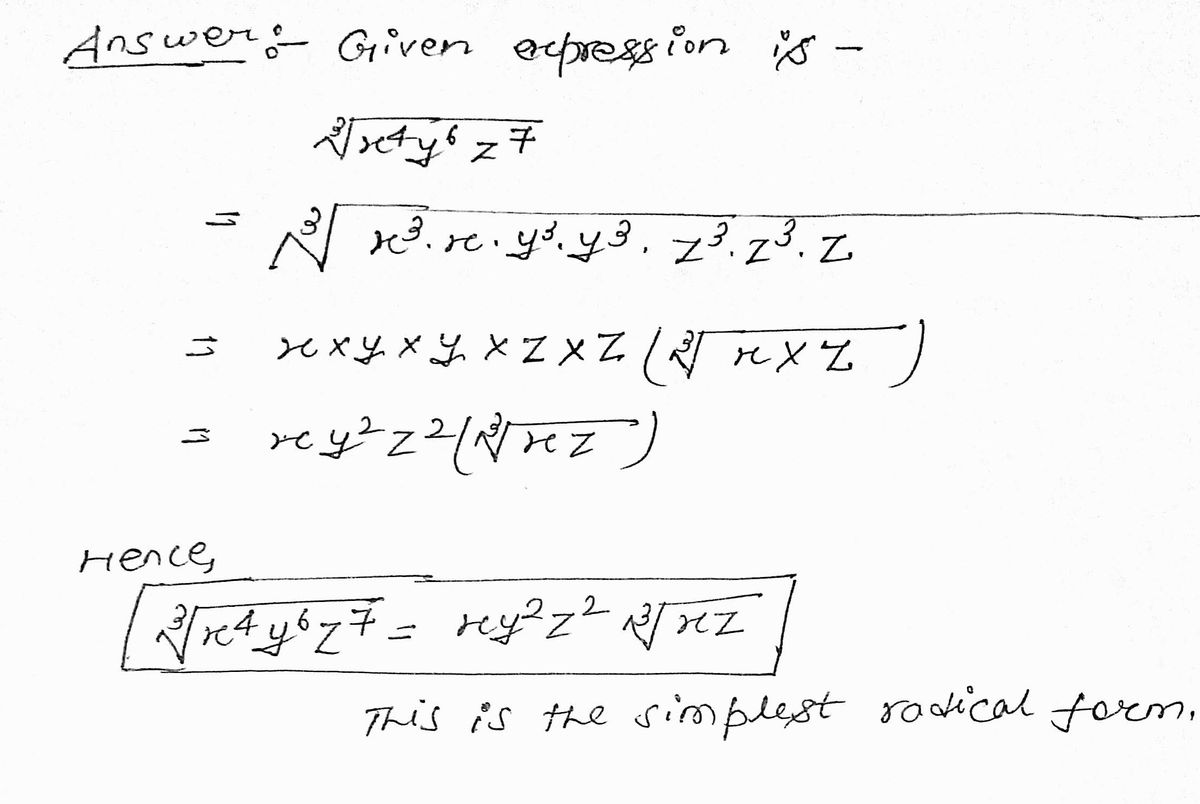 Answer:- Given expression is -
∛(x⁴y⁶z⁷)
= ∛(x³.x.y³.y³.z³.z³.z)
= x×y×y×z×z(∛(x×z))
= xy²z²(∛(xz))
Hence,
∛(x⁴y⁶z⁷) = xy²z² ∛(xz)
This is the simplest radical form.